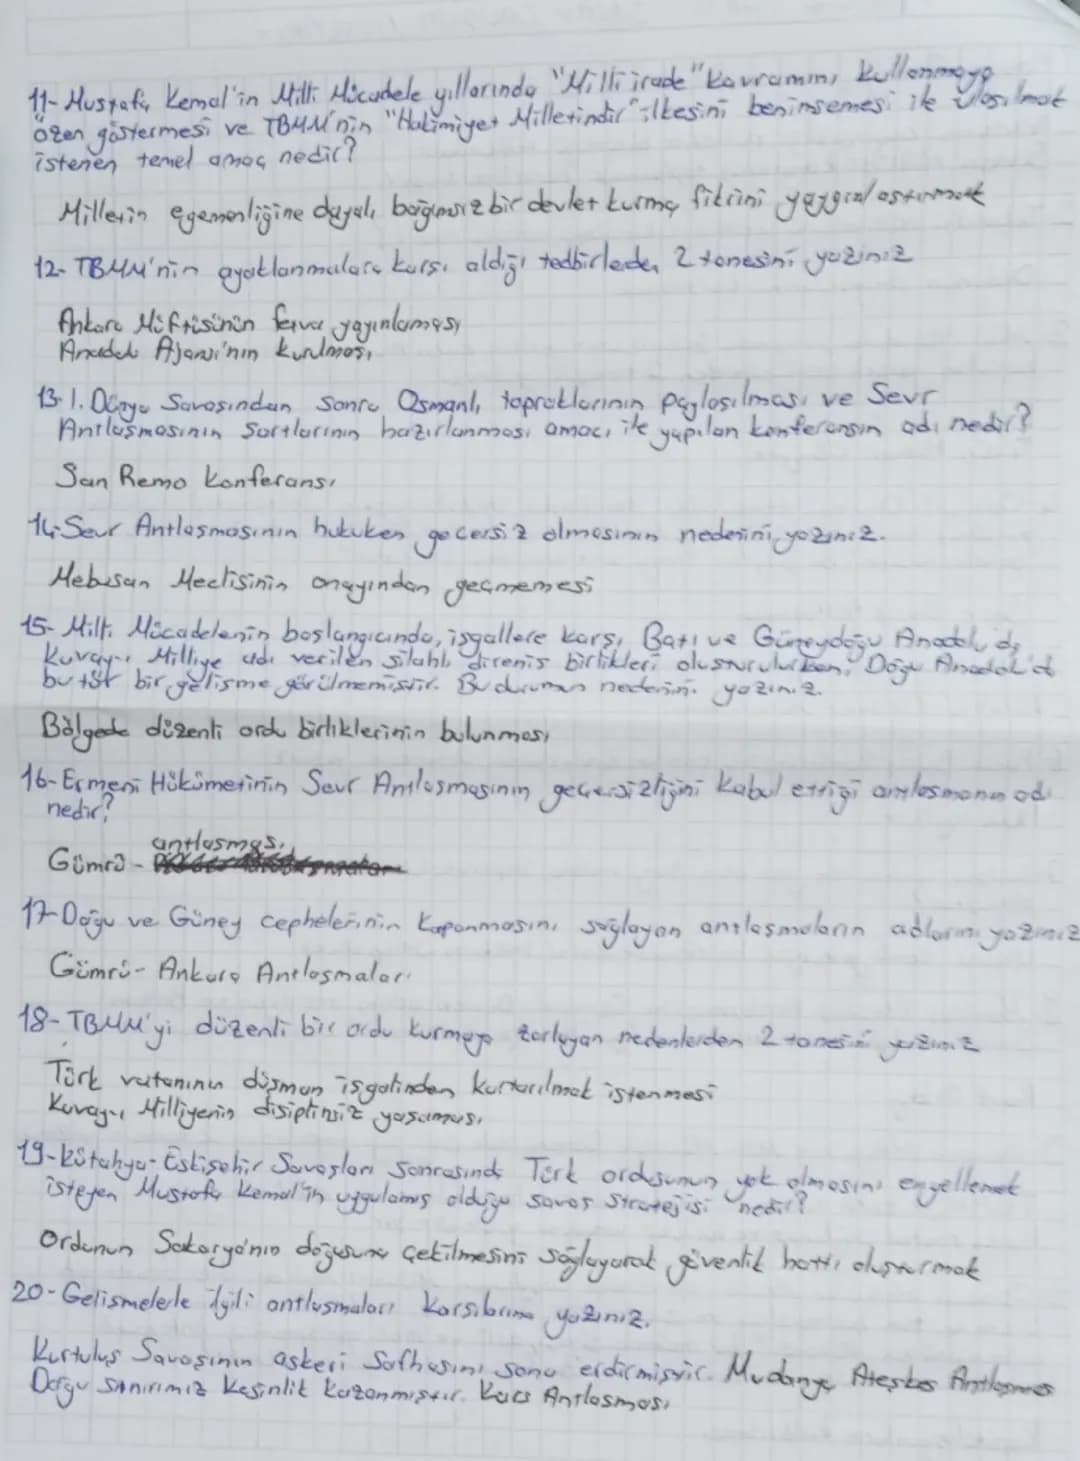 11- Mustafa Kemal'in Milli Mücadele yıllarında "Milli irade" kavramını kullanmaya
özen göstermesi ve TBMM'nin "Hakimiyet Milletindir" ilkesini benimsemesi ile ulaşılmak
istenen temel amaç nedir?
Milletin egemenliğine dayalı bağımsız bir devlet kurma fikrini yaygınlaştırmak
12- TBMM'nin ayaklanmalara karşı aldığı tedbirlerden 2 tanesini yazınız
Ankara Müftüsünün fetva yayınlaması
Anadolu Ajansı'nın kurulması
13- 1. Dünya Savaşından sonra Osmanlı topraklarının paylaşılması ve Sevr
Antlaşmasının şartlarının hazırlanması amacı ile yapılan konferansın adı nedir?
San Remo Konferansı
14- Sevr Antlaşmasının hukuken geçersiz olmasının nedenini yazınız.
Mebusan Meclisinin onayından geçmemesi
15- Milli Mücadelenin başlangıcında, işgallere karşı Batı ve Güneydoğu Anadolu'da
Kuvay-ı Milliye adı verilen silahlı direniş birlikleri oluşturulurken, Doğu Anadolu'da
bu tür bir gelişme görülmemiştir. Bu durumun nedenini yazınız.
Bölgede düzenli ordu birliklerinin bulunması
16- Ermeni Hükümetinin Sevr Antlaşmasının geçersizliğini kabul ettiği antlaşmanın adı
nedir?
Gümrü - antlaşması
17- Doğu ve Güney cephelerinin kapanmasını sağlayan antlaşmaların adlarını yazınız
Gümrü - Ankara Antlaşmaları
18- TBMM'yi düzenli bir ordu kurmaya zorlayan nedenlerden 2 tanesini yazınız
Türk vatanının düşman işgalinden kurtarılmak istenmesi
Kuvay-ı Milliyenin disiplinsiz yaşaması
19- Kütahya-Eskişehir Savaşları sonrasında Türk ordusunun yok olmasını engellemek
isteyen Mustafa Kemal'in uygulamış olduğu savaş stratejisi nedir?
Ordunun Sakarya'nın doğusuna çekilmesini sağlayarak güvenlik hattı oluşturmak
20- Gelişmelerle ilgili antlaşmaları karşılarına yazınız.
Kurtuluş Savaşının askeri Safhasını sona erdirmiştir. Mudanya Ateşkes Antlaşması
Doğu sınırımız kesinlik kazanmıştır. Kars Antlaşması